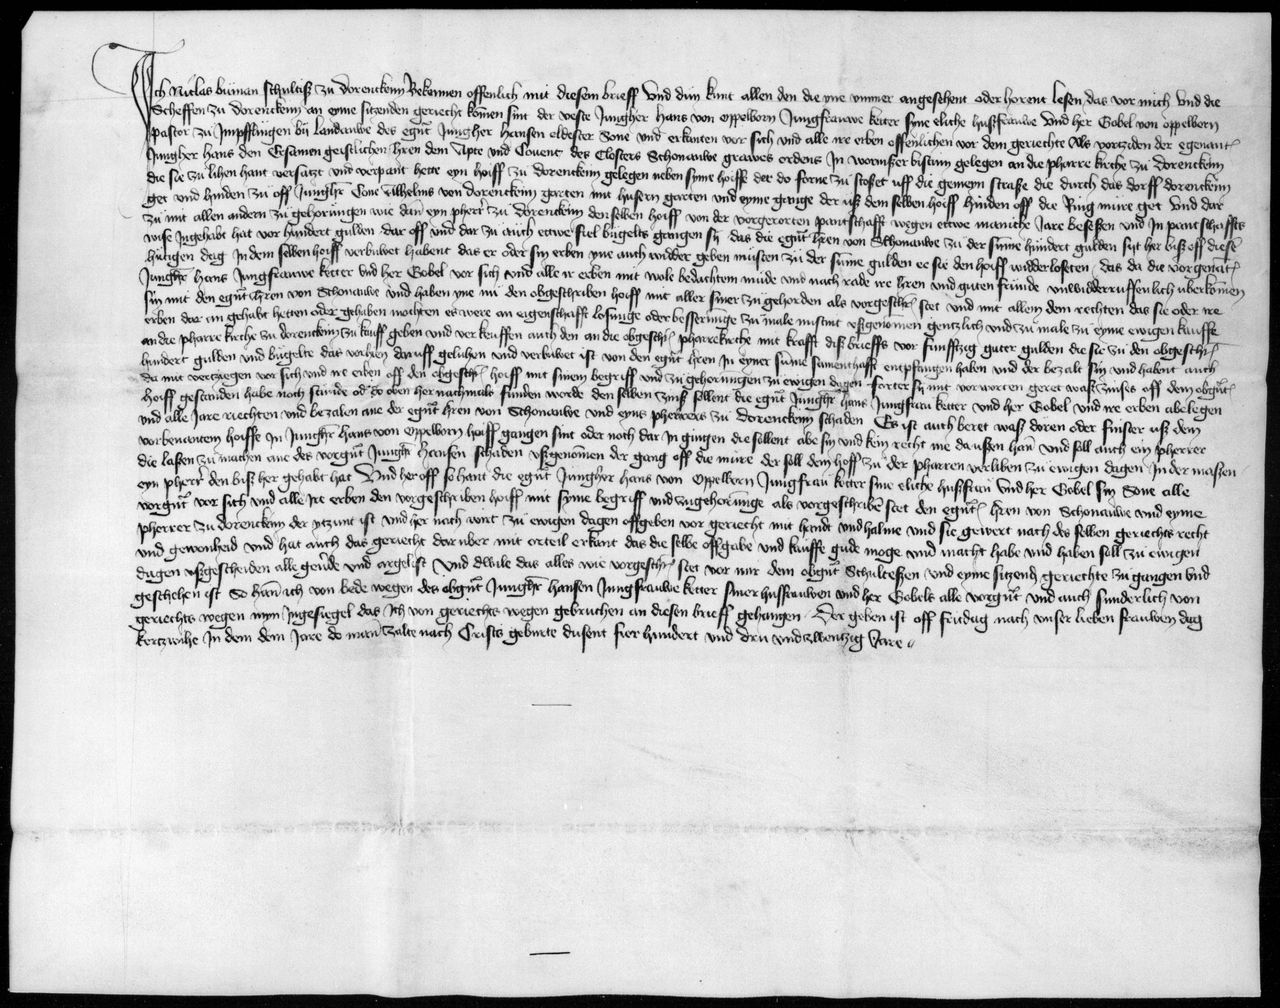 Ich Niclas buman schultiß zu dorenckein Bekennen offenlich mit diesem brieff Vnd dun kunt allen den die yne vmmer angesehent oder horent lesen das vor mich vnd die
Scheffen zu dorenckein an eyme sitzenden geriecht komen sint der veste Jungher Hans von Oppelborn Jungfrauwe ketter syne eliche husfrauwe Vnd her Gobel von oppelborn
pastor zu Impfflingen bij Landauwe des egnt Jungher Hansen eldester Sone vnd erkanten vor sich vnd alle ire erben offenlichen vor dem geriechte Als vortziden der egenant
Jungher Hans den Ersamen geistlichen hren dem Apte vnd Couent des Closters Schonauwe grawes ordens In wormßer bistum gelegen an die pharre kirche zu dorenckein
die sie zu lihen hant versatzt vnd verpant hette eyn hoiff zu dorenckein gelegen neben syme hoiffe der do forne zu stoßet uff die gemeyn straße die durch das dorff dorenckein
get vnd hinden zu off Junghr Cone Wilhelms von dorenckein garten mit husern garten vnd eyme gange der uß dem selben hoiff hinden off die Ring mure get Vnd dar
zu mit allen andern zu gehorungen wie dan eyn pherrer zu dorenckein den selben hoiff von der vorgerorten pantschafft wegen ettwe maniche Jare beseßen vnd In pantschaffts
wise Ingehabt hat vor hundert gulden dar off vnd dar zu auch ettwe fiel bugelts gangen sy das die egnt hren von Schonauwe zu der sume hundert gulden syt her biß off diesen
hutigen dag In dem selben hoiff verbuwet habent das er oder sin erben yne auch widder geben musten zu der sume gulden ee sie den hoiff widderloseten das da die vorgenant
Junghr Hans Jungfrauwe ketter vnd her Gobel vor sich vnd alle ir erben mit wole bedachtem mude vnd nach rade ire hren vnd guten frunde vnwidderruffenlich uberkomen
sin mit den egnt hren von Schonauwe vnd haben yne nu den obgeschriben hoiff mit aller siner zu gehorden als vorgeschr stet vnd mit allem dem rechten das sie oder ire
erben dar an gehabt hetten oder gehaben mochten es were an eigenschafft losunge oder besserunge zu male nustnit ußgenomen gentzlich vnd zu male zu eyme ewigen kauffe
an die pharre kirche zu dorenckein zu kauff geben vnd verkeuffen auch den an die obgeschr pharrekirche mit krafft diß brieffs vor funfftzig guter gulden die sie zu den obgeschr
hundert gulden vnd bugelte das vorhien daruff geluhen vnd verbuwet ist von den egnt hren In eyner sume samenthafft entpfangen haben vnd der bezalt sin vnd habent auch
da mit vertziegen vor sich vnd ire erben off den obgeschr hoiff mit sinem begriff vnd zu gehorungen zu ewigen dagen forter sy mit vorworten geret was zinses off dem obgnt
hoiff gestanden habe noch stunde oder do oben her nachmals funden worde den selben zinß sollent die egnt Junghr hans Jungfrau ketter vnd her Gobel vnd ire erben abelegen
vnd alle Jare riechten vnd bezalen ane der egnt hren von Schonauwe vnd eyns pherrers zu dorenckein schaden Es ist auch beret was doren oder finster uß dem
vorbenantem hoiffe In Junghr Hans von Oppelborn hoiff gangen sint oder noch dar In gingen die sollent abe sin vnd kein recht me da ußen han vnd soll auch ein pherrer
die laßen zu machen ane des vorgnt Junghr Hansen schaden ußgenomen der gang off die mure der soll dem hoff zu der pharren verliben zu ewigen dagen In der maßen
eyn pherrer den biß her gehabt hat Vnd her off so hant die egnt Jungher Hans von Oppelborn Jungfrau ketter sine eliche husfrau vnd her Gobel sin Sone alle
vorgnt vor sich vnd alle ire erben den vorgeschriben hoiff mit syme begriff vnd zugehorunge als vorgeschribe stet den egnt hren von Schonauwe vnd eyme
pherrer zu dorenckein der ytzunt ist vnd her nach wirt zu ewigen dagen offgeben vor geriecht mit handt vnd halme vnd sie gewert nach des selben geriechts recht
vnd gewonheid vnd hat auch das geriecht dar uber mit orteil erkant das die selbe offgabe vnd kauffe gude moge vnd macht habe vnd haben soll zu ewigen
dagen ußgescheiden alle geude vnd argelist Vnd dwile das alles wie vorgeschr stet vor mir dem obgnt Schulteßen vnd eyme sitzenden geriechte zu gangen vnd
geschehen ist So han ich von bede wegen des obgnt Junghr Hansen Jungfrauwe ketter siner husfrauwen vnd her Gobels alle vorgnt vnd auch sunderlich von
geriechts wegen myn Ingesiegel das Ich von geriechts wegen gebruchen an diesen brieff gehangen Der geben ist off fridag nach vnser lieben frauwen dag
kertzwihe In dem dem Jare do man zalte nach Crists geburte dusent fier hundert vnd dru vnd zwentzig Jare